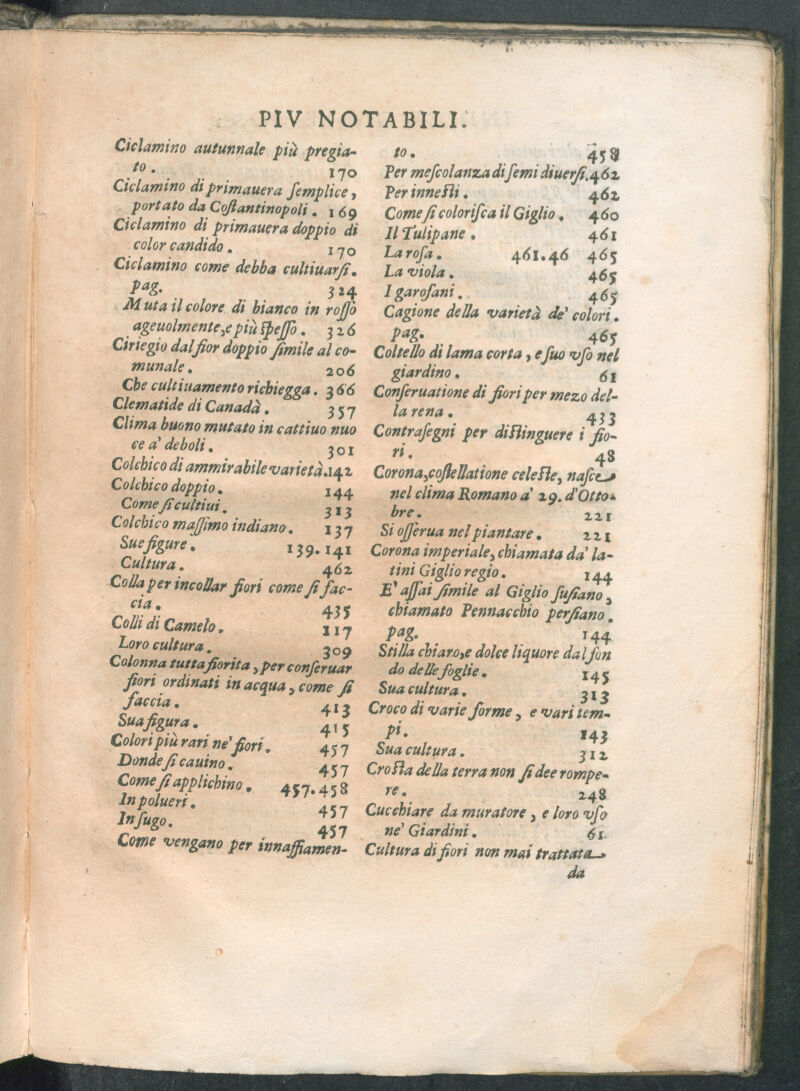 PIV NOTABILI.
Ciclamino autunnale più pregia-
to. 170
Ciclamino di primauera ſemplice,
portato da Coſtantinopoli. 169
Ciclamino di primauera doppio di
color candido. 170
Ciclamino come debba cultiuarſi.
pag. 324
Muta il colore di bianco in roſſo
ageuolmente, e più ſpeſſo. 326
Ciriegio dal fior doppio ſimile al co-
munale. 206
Che cultiuamento richiegga. 366
Clematide di Canadà. 357
Clima buono mutato in cattiuo nuo
ce a' deboli. 301
Colchico di ammirabile varietà. 142
Colchico doppio. 144
Come ſi cultiui. 313
Colchico maſſimo indiano. 137
Sue figure. 139. 141
Cultura. 462
Colla per incollar fiori come ſi fac-
cia. 435
Colli di Camelo. 117
Loro cultura. 309
Colonna tutta fiorita, per conſeruar
fiori ordinati in acqua, come ſi
faccia. 413
Sua figura. 415
Colori più rari ne' fiori. 457
Donde ſi cauino. 457
Come ſi applichino. 457. 458
In polueri. 457
In ſugo. 457
Come vengano per innaffiamen-
to. 458
Per meſcolanza di ſemi diuerſi. 462
Per inneſti. 462
Come ſi coloriſca il Giglio. 460
Il Tulipane. 461
La roſa. 461. 46 465
La viola. 465
I garofani. 465
Cagione della varietà de' colori.
pag. 465
Coltello di lama corta, e ſuo vſo nel
giardino. 61
Conſeruatione di fiori per mezo del-
la rena. 433
Contraſegni per diſtinguere i fio-
ri. 48
Corona, coſtellatione celeſte, naſce
nel clima Romano a' 29. d'Otto-
bre. 221
Si oſſerua nel piantare. 221
Corona imperiale, chiamata da' la-
tini Giglio regio. 144
E' aſſai ſimile al Giglio ſuſiano,
chiamato Pennacchio perſiano.
pag. 144
Stilla chiaro, e dolce liquore dal fon
do delle foglie. 145
Sua cultura. 313
Croco di varie forme, e vari tem-
pi. 143
Sua cultura. 312
Croſta della terra non ſi dee rompe-
re. 248
Cucchiare da muratore, e loro vſo
ne' Giardini. 61
Cultura di fiori non mai trattata
da